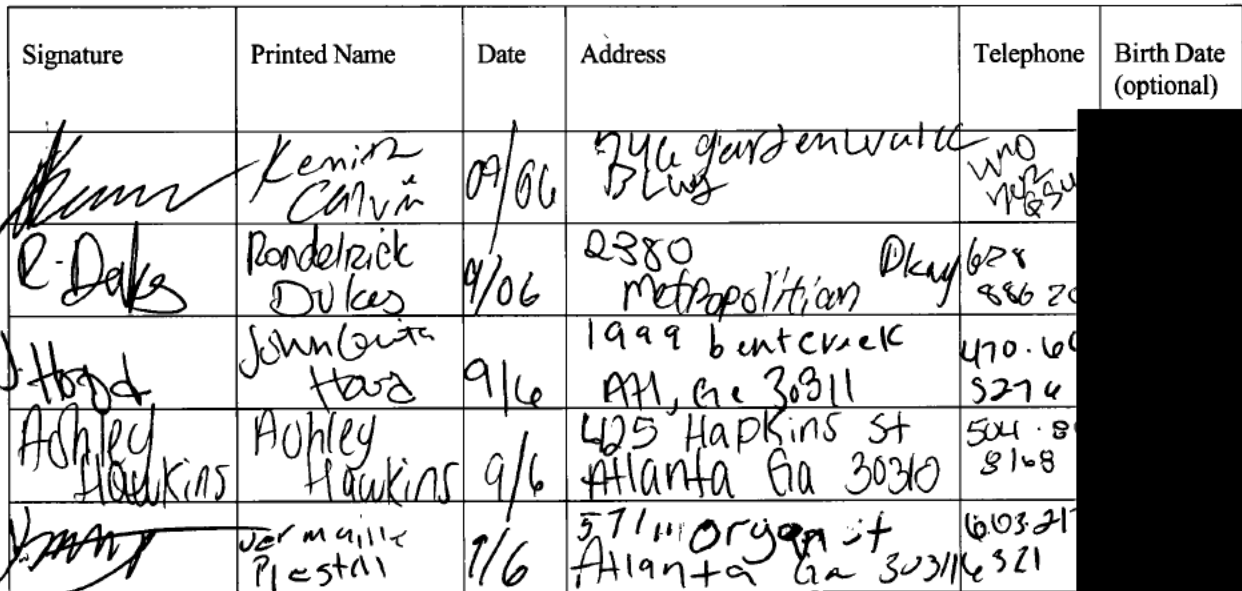 Signature Printed Name Date Address Telephone Birth Date
(optional)
Kenith
Calvin 09/06
R. Dukes Rondelrick
Dukes 9/06 2380
Metropolitian Pkwy 678
886 20
J. Hood Hood 9/6 1999 bentcreek
Atl, Ga 30311 470.60
5276
Ashley
Hawkins Ashley
Hawkins 9/6 425 Hapkins St
Atlanta Ga 30310 504.8
8168
9/6 571 morgan st
Atlanta Ga 30311 603.217
6321